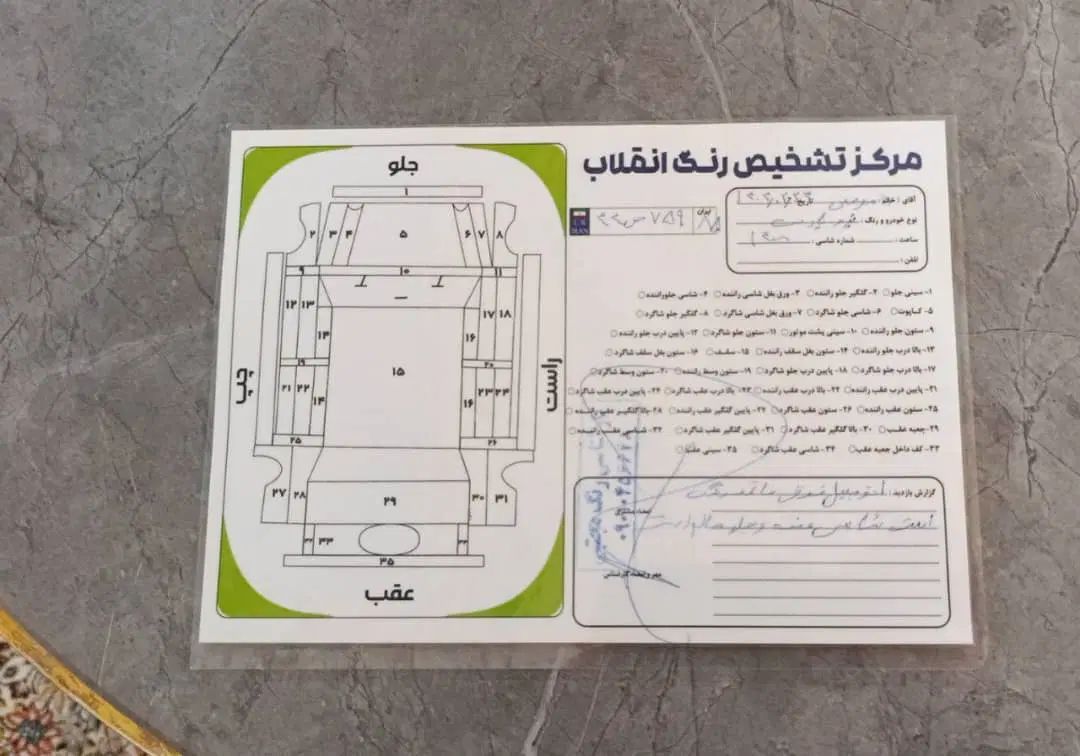 مرکز تشخیص رنگ انقلاب
آقای / خانم : تاریخ :
نوع خودرو و رنگ :
ساعت : شماره شاسی :
تلفن :
ایران
۱- سینی جلو ۲- گلگیر جلو راننده ۳- ورق بغل شاسی راننده ۴- شاسی جلو راننده
۵- کاپوت ۶- شاسی جلو شاگرد ۷- ورق بغل شاسی شاگرد ۸- گلگیر جلو شاگرد
۹- ستون جلو راننده ۱۰- سینی پشت موتور ۱۱- ستون جلو شاگرد ۱۲- پایین درب جلو راننده
۱۳- بالا درب جلو راننده ۱۴- ستون بغل سقف راننده ۱۵- سقف ۱۶- ستون بغل سقف شاگرد
۱۷- بالا درب جلو شاگرد ۱۸- پایین درب جلو شاگرد ۱۹- ستون وسط راننده ۲۰- ستون وسط شاگرد
۲۱- پایین درب عقب راننده ۲۲- بالا درب عقب راننده ۲۳- بالا درب عقب شاگرد ۲۴- پایین درب عقب شاگرد
۲۵- ستون عقب راننده ۲۶- ستون عقب شاگرد ۲۷- پایین گلگیر عقب راننده ۲۸- بالا گلگیر عقب راننده
۲۹- جعبه عقب ۳۰- بالا گلگیر عقب شاگرد ۳۱- پایین گلگیر عقب شاگرد ۳۲- شاسی عقب راننده
۳۳- کف داخل جعبه عقب ۳۴- شاسی عقب شاگرد ۳۵- سینی عقب
گزارش بازدید : اتومبیل فوق فاقد رنگ
است شاسی عقب و جلو سالم است
مهر و امضاء کارشناس
جلو
۱
۲ ۳ ۴ ۵ ۶ ۷ ۸
۹ ۱۰ ۱۱
۱۲ ۱۳ ۱۴ ۱۵ ۱۶ ۱۷ ۱۸
چپ
راست
۱۹ ۲۰
۲۱ ۲۲ ۱۴ ۱۶ ۲۳ ۲۴
۲۵ ۲۶
۲۷ ۲۸ ۲۹ ۳۰ ۳۱
۳۲ ۳۳ ۳۴
۳۵
عقب